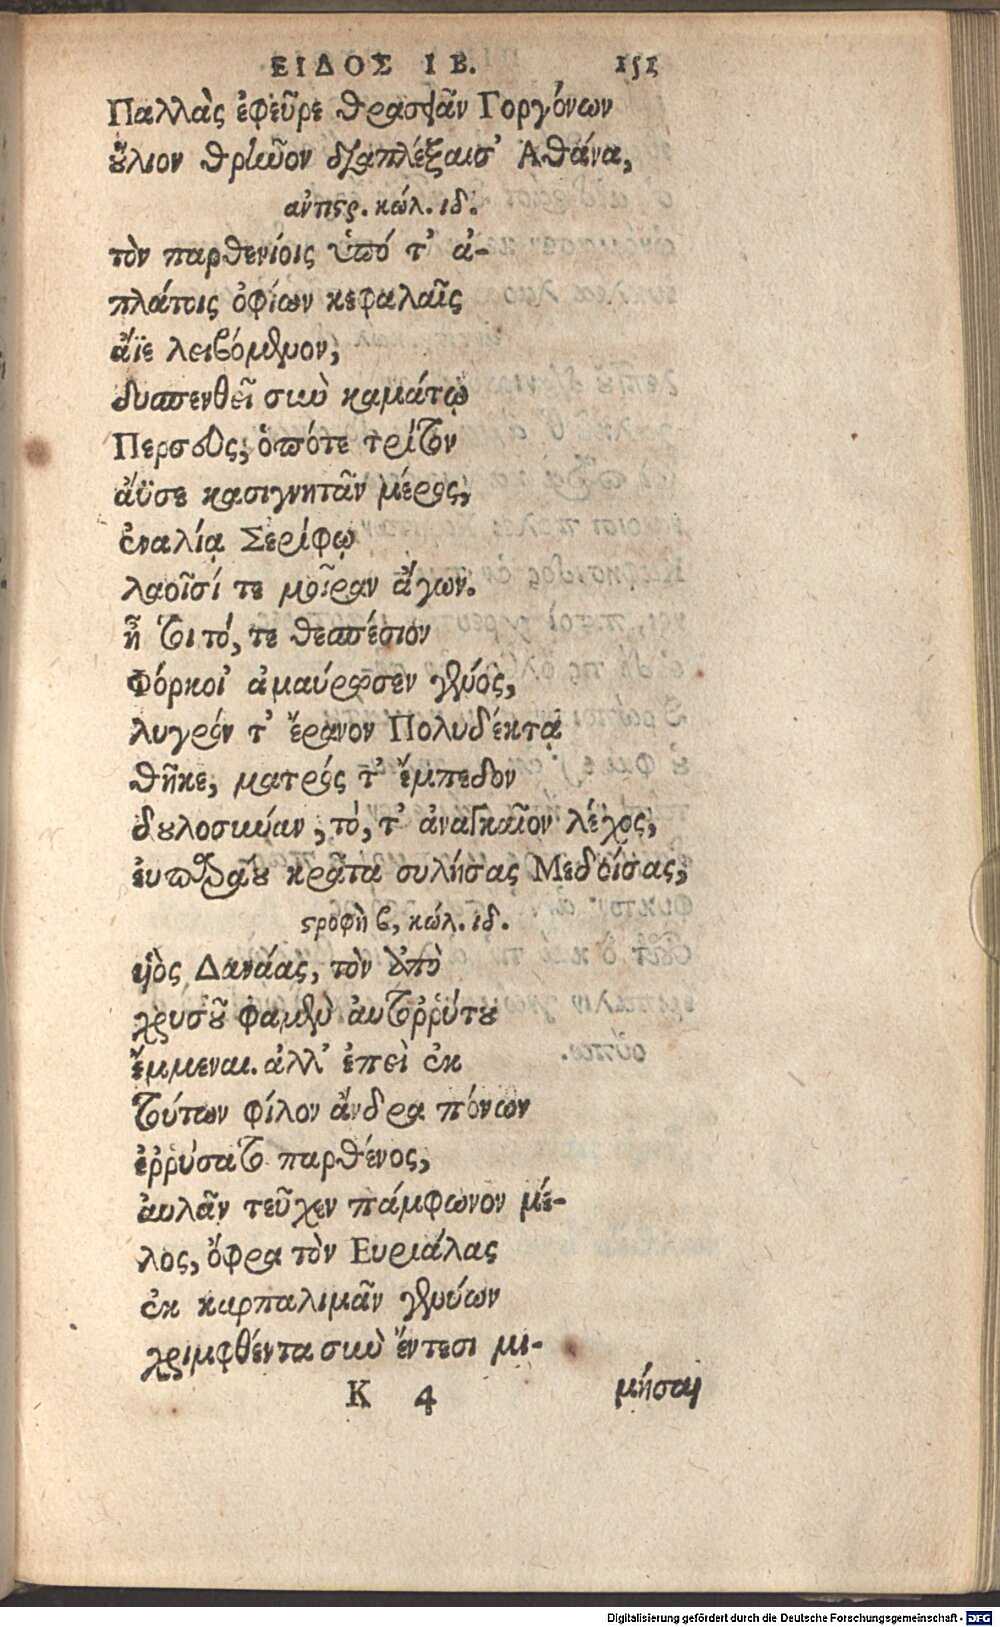 ΕΙΔΟΣ ΙΒ. 151
Παλλὰς ἐφεῦρε θρασειᾶν Γοργόνων
οὔλιον θρῆνον διαπλέξαισ' Ἀθάνα,
ἀντιστρ. κώλ. ιδ.
τὸν παρθενίοις ὑπό τ' ἀ-
πλάτοις ὀφίων κεφαλαῖς
ἄϊε λειβόμενον,
δυσπενθεῖ σὺν καμάτῳ
Περσεὺς, ὁπότε τρίτον
ἄϋσε κασιγνητᾶν μέρος,
ἐναλίᾳ Σερίφῳ
λαοῖσί τε μοῖραν ἄγων.
ἦ τοι τό, τε θεσπέσιον
Φόρκοι' ἀμαύρωσεν γένος,
λυγρόν τ' ἔρανον Πολυδέκτᾳ
θῆκε, ματρός τ' ἔμπεδον
δουλοσύναν, τό, τ' ἀναγκαῖον λέχος,
εὐπαράου κρᾶτα συλήσας Μεδοίσας,
στροφὴ β, κώλ. ιδ.
υἱὸς Δανάας, τὸν ἀπὸ
χρυσοῦ φαμὲν αὐτοῤῥύτου
ἔμμεναι. ἀλλ' ἐπεὶ ἐκ
τούτων φίλον ἄνδρα πόνων
ἐῤῥύσατο παρθένος,
αὐλᾶν τεῦχεν πάμφωνον μέ-
λος, ὄφρα τὸν Εὐριάλας
ἐκ καρπαλιμᾶν γενύων
χριμφθέντα σὺν ἔντεσι μι-
Κ 4 μήσαι